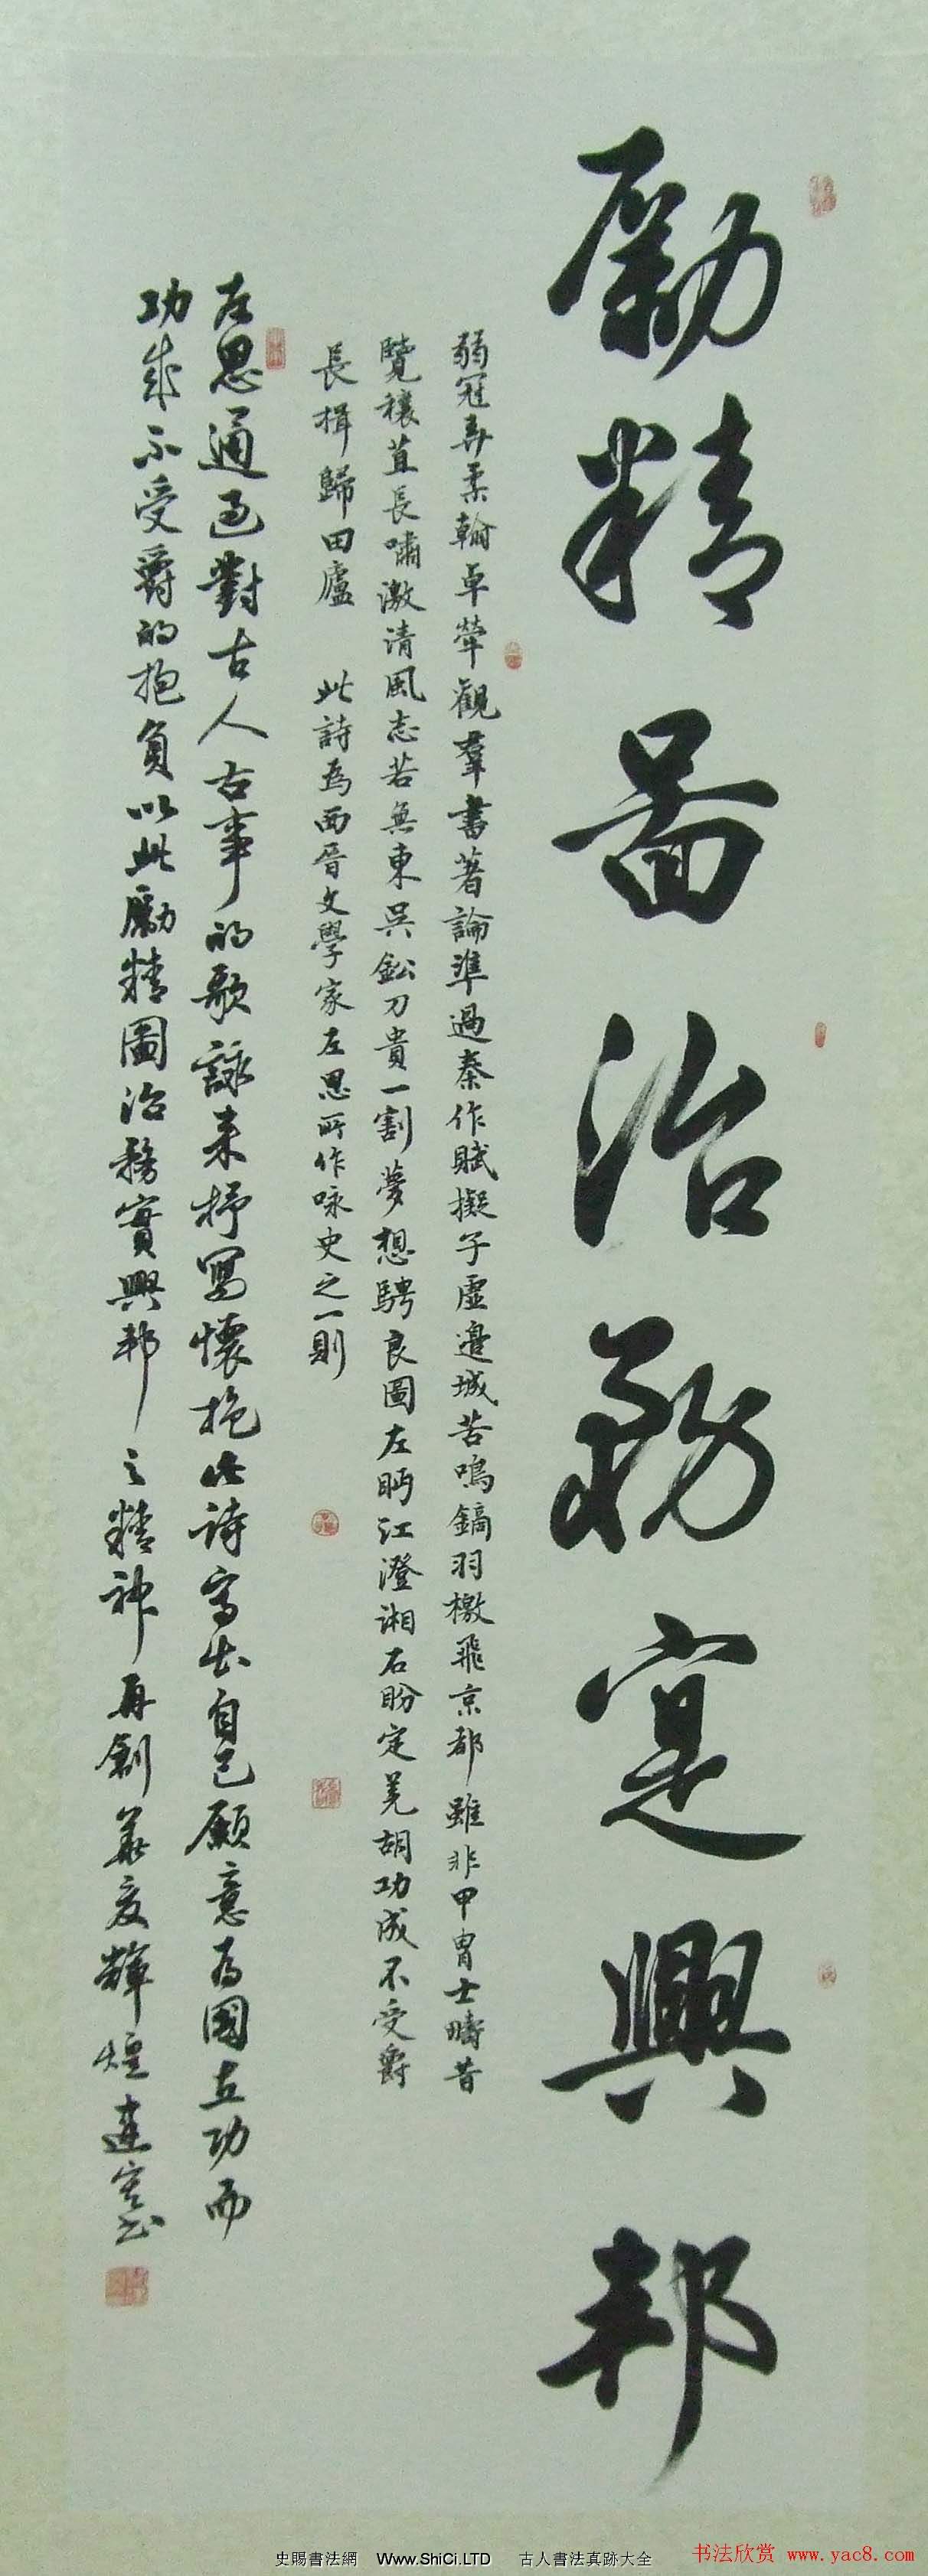 勵精啚治務寔興邦
弱冠弄柔翰卓犖觀羣書著論準過秦作賦擬子虛邊城苦鳴鏑羽檄飛京都雖非甲冑士疇昔
覽穰苴長嘯激清風志若無東吳鈆刀貴一割夢想騁良圖左眄江澄湘右盼定羌胡功成不受爵
長揖歸田廬 此詩為西晉文學家左思所作咏史之一則
左思通過對古人古事的歌詠来抒寫懷抱此詩寫出自己願意為國立功而
功成不受爵的抱負以此勵精圖治務實興邦之精神再創華夏輝煌建宏书
史賜書法網 Www.ShiCi.LTD 古人書法真跡大全
书法欣赏 www.yac8.com